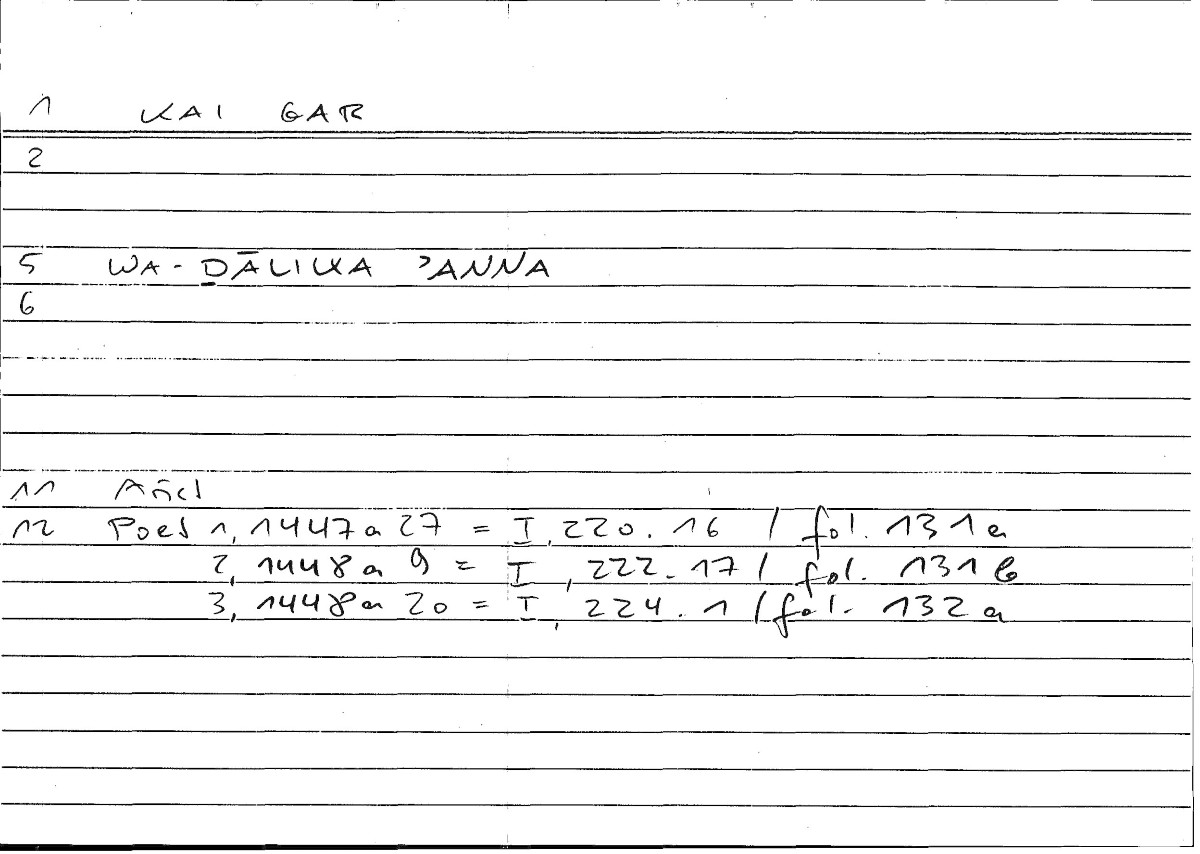 1 KAI GAR
2
5 WA-ḎĀLIKA ʾANNA
6
11 Añcl
12 Poes 1, 1447a 27 = I, 220.16 / fol. 131a
2, 1448a 9 = I, 222.17 / fol. 131b
3, 1448a 20 = I, 224.1 / fol. 132a